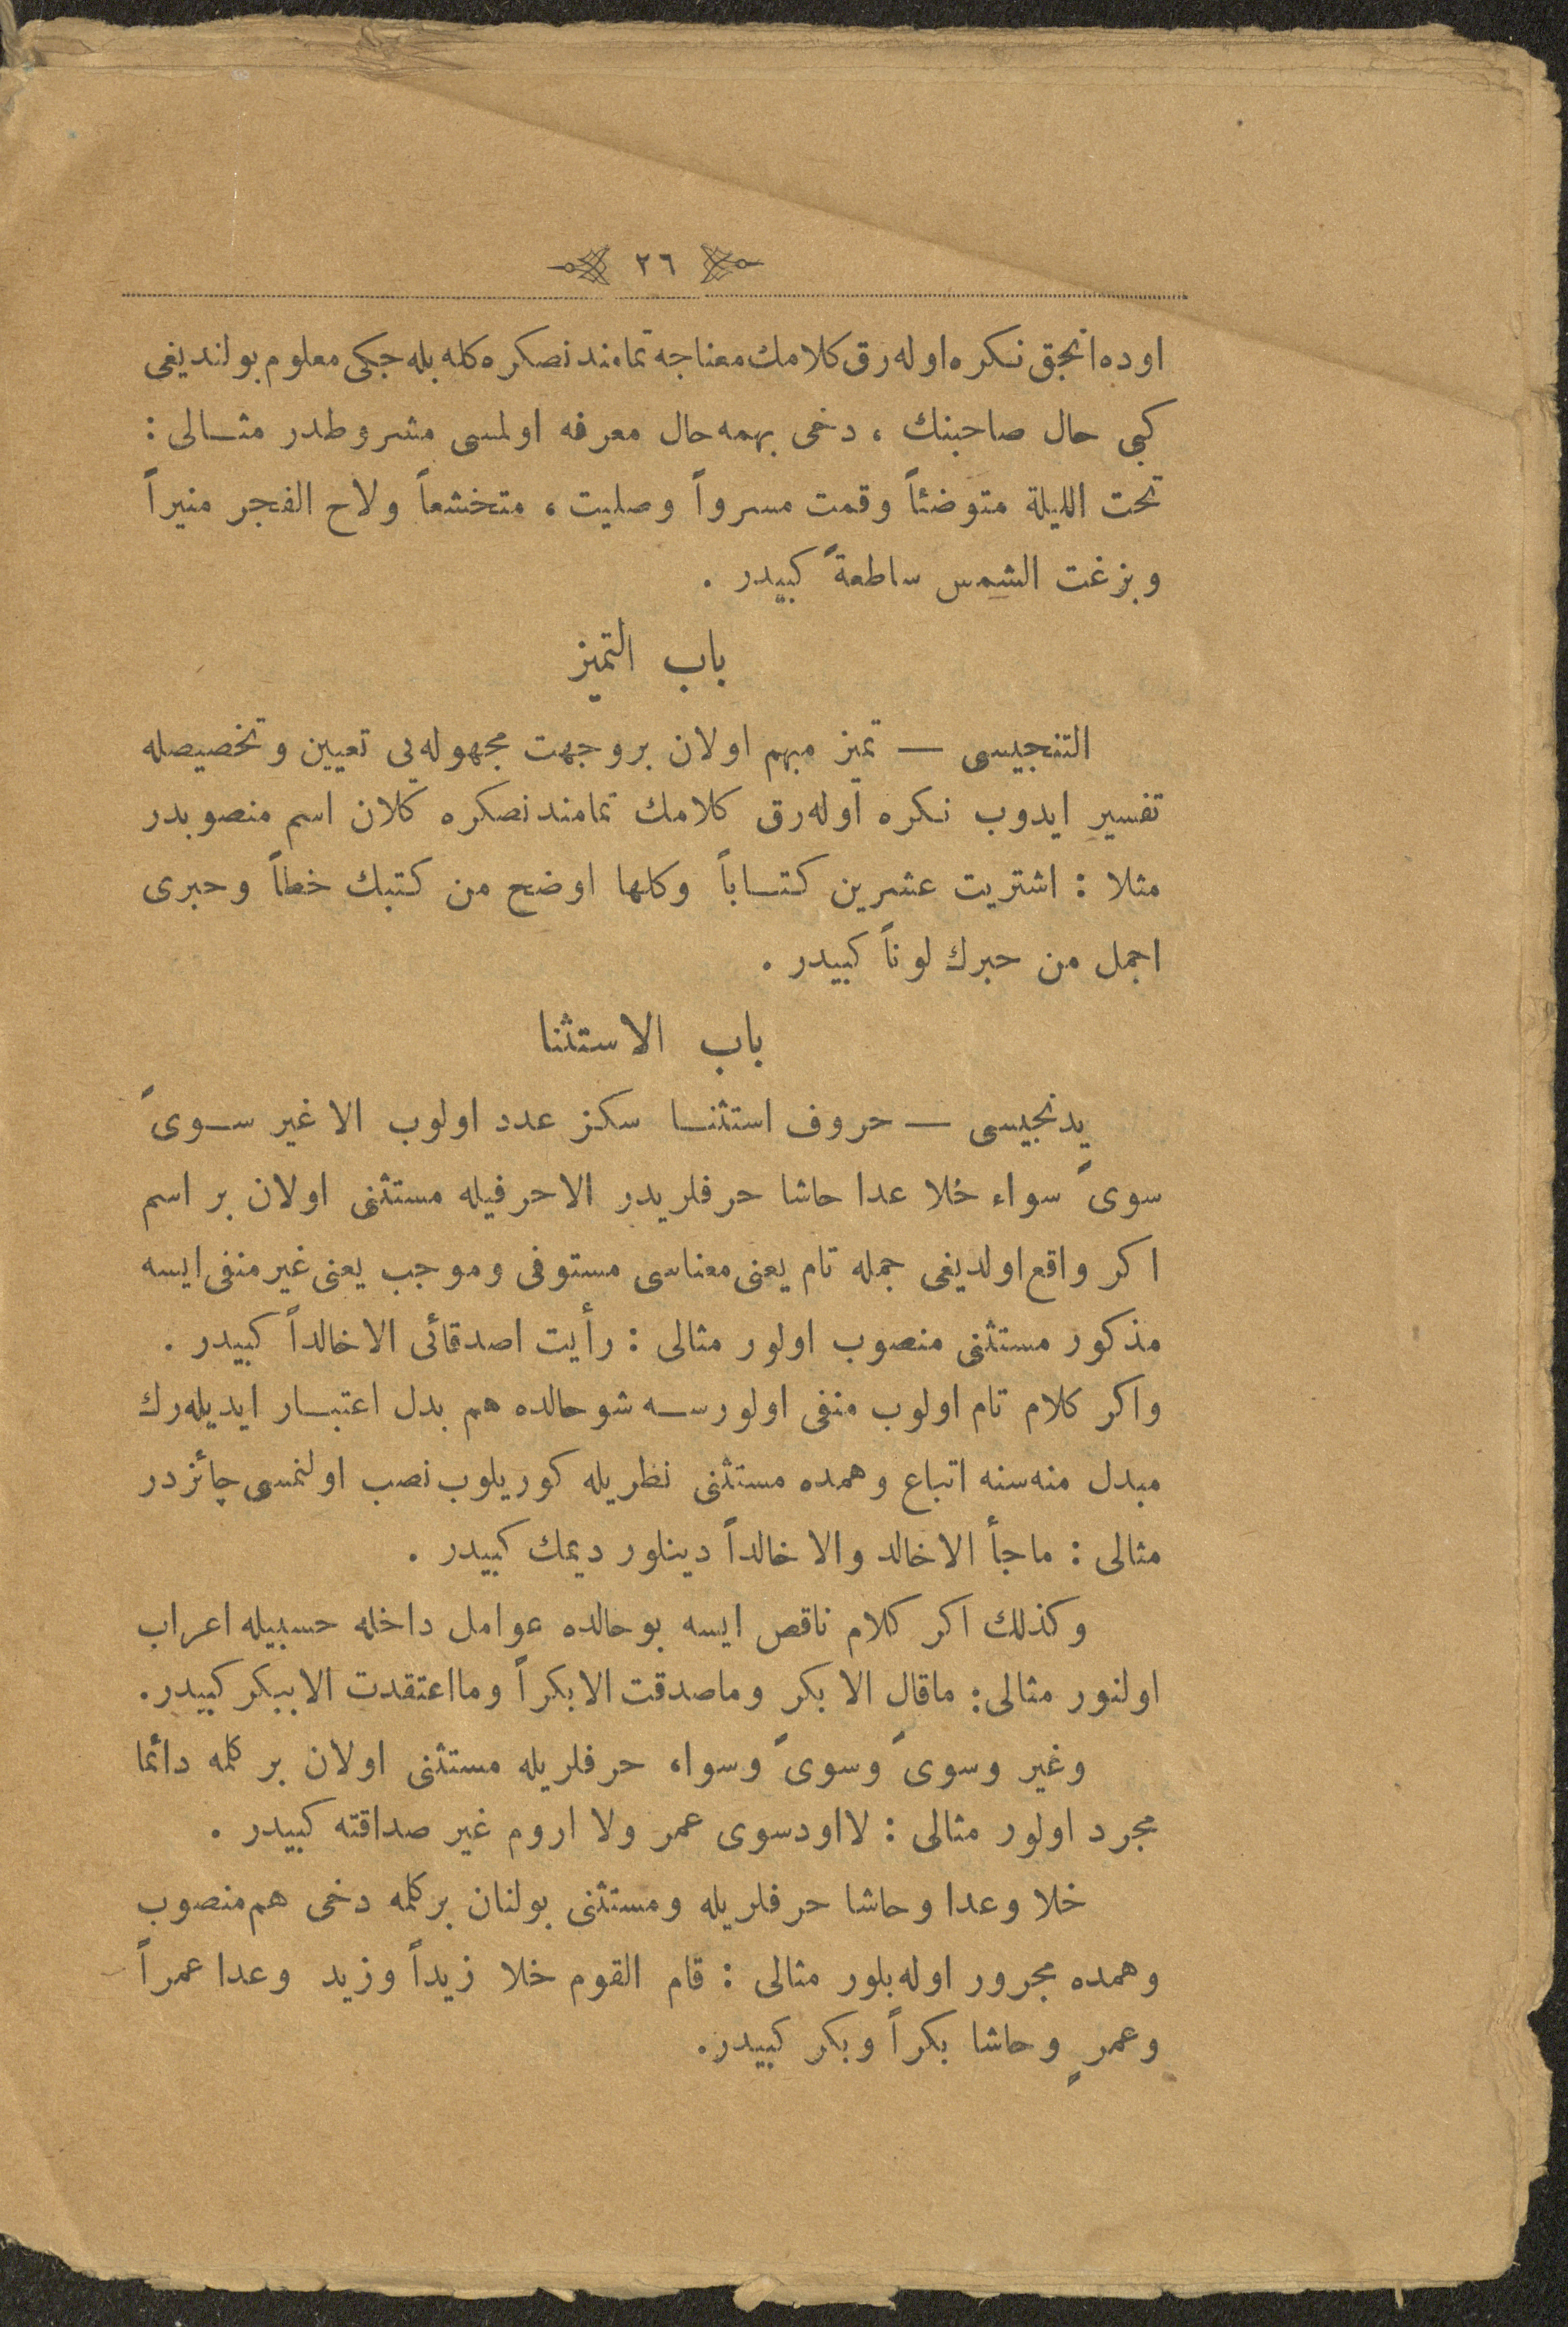 ٢٦
اوده انجق نكره اوله‌رق كلامك معناجه تمامندنصكره كله بيله جكى معلوم بولنديغى
كبى حال صاحبنك ، دخى بهمه‌حال معرفه اولمسى مشروطدر مثالى :
نحت الليلة متوضئاً وقمت مسرواً وصليت ، متخشعاً ولاح الفجر منيراً
وبزغت الشمس ساطعةً كبيدر .
باب التميز
التنجيسى — تميز مبهم اولان بروجهت مجهوله‌يى تعيين وتخصيصله
تفسير ايدوب نكره اوله‌رق كلامك تمامندنصكره كلان اسم منصوبدر
مثلا : اشتريت عشرين كتاباً وكلها اوضح من كتبك خطاً وحبرى
اجمل من حبرك لوناً كبيدر .
باب الاستثنا
يدنجيسى — حروف استثنا سكز عدد اولوب الا غير سوىً
سوىً سواء خلا عدا حاشا حرفلريدر الاحرفيله مستثنى اولان بر اسم
اكر واقع اولديغى جمله تام يعنى معناسى مستوفى وموجب يعنى غير منفى ايسه
مذكور مستثنى منصوب اولور مثالى : رأيت اصدقائى الاخالداً كبيدر .
واكر كلام تام اولوب منفى اولورسه شوحالده هم بدل اعتبار ايديله‌رك
مبدل منه‌سنه اتباع وهمده مستثنى نظريله كوريلوب نصب اولنمسى چائزدر
مثالى : ماجأ الاخالد والا خالداً دينلور ديمك كبيدر .
وكذلك اكر كلام ناقص ايسه بوحالده عوامل داخله حسبيله اعراب
اولنور مثالى : ماقال الا بكر وماصدقت الابكراً ومااعتقدت الاببكر كبيدر.
وغير وسوىً وسوىً وسواء حرفلريله مستثنى اولان بر كلمه دائما
مجرد اولور مثالى : لااودسوى عمر ولا اروم غير صداقته كبيدر .
خلا وعدا وحاشا حرفلريله ومستثنى بولنان بركلمه دخى هم منصوب
وهمده مجرور اوله‌بلور مثالى : قام القوم خلا زيداً وزيد وعدا عمراً
وعمرٍ وحاشا بكراً وبكر كبيدر.